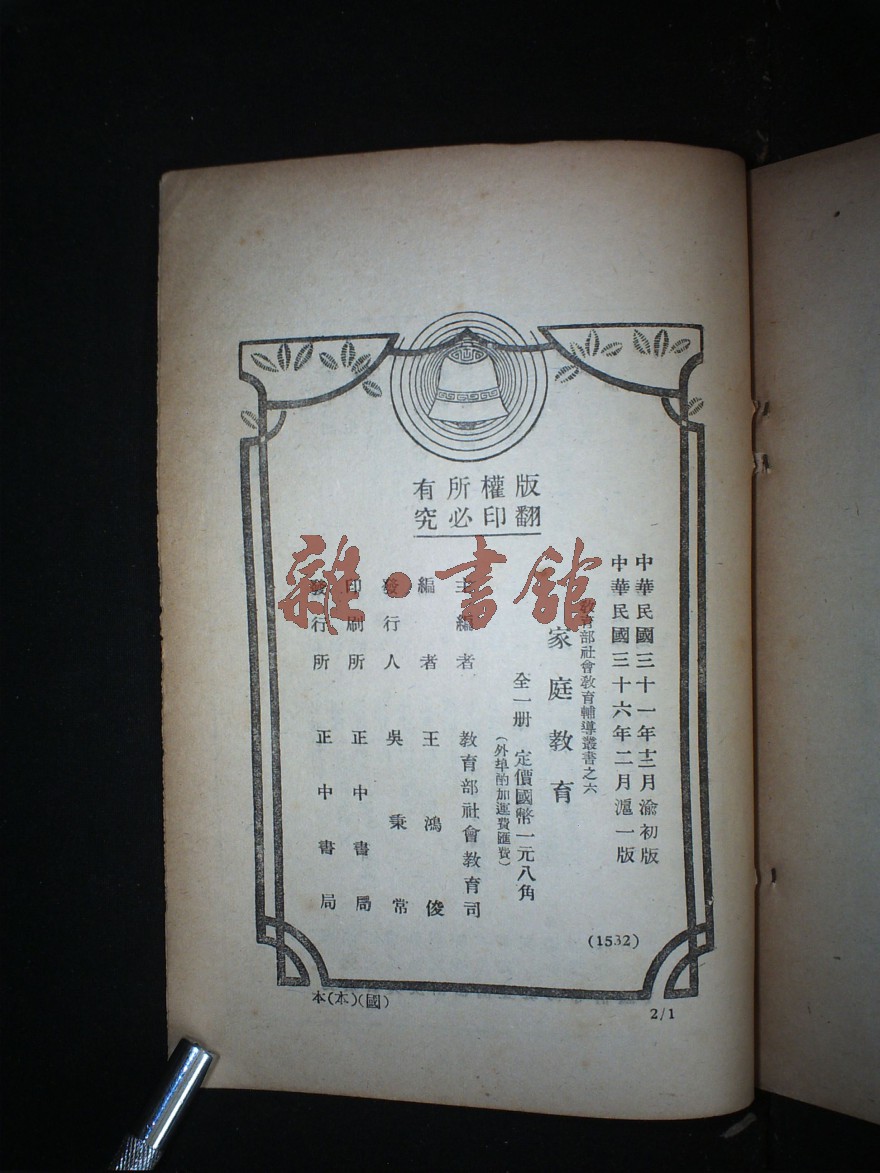 版權所有
翻印必究
中華民國三十一年十二月渝初版
中華民國三十六年二月滬一版
教育部社會教育輔導叢書之六
家庭教育
全一册 定價國幣一元八角
(外埠酌加運費匯費)
主編者 教育部社會教育司
編者 王鴻俊
發行人 吳秉常
印刷所 正中書局
發行所 正中書局
(1532)
本(本)(國)
2/1
雜·書舘